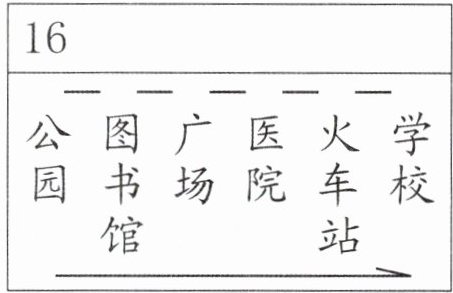 16
公园 — 图书馆 — 广场 — 医院 — 火车站 — 学校